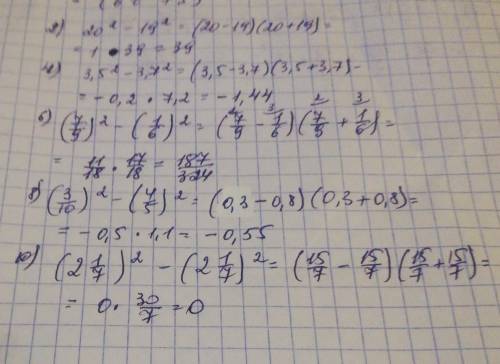 2) 20² - 19² = (20-19)(20+19) =
= 1 · 39 = 39
4) 3,5² - 3,7² = (3,5-3,7)(3,5+3,7) -
= -0,2 · 7,2 = -1,44
6) (7/9)² - (1/6)² = (7/9 - 1/6)(7/9 + 1/6) =
= 11/18 · 17/18 = 187/324
8) (3/10)² - (4/5)² = (0,3-0,8)(0,3+0,8) =
= -0,5 · 1,1 = -0,55
10) (2 1/7)² - (2 1/7)² = (15/7 - 15/7)(15/7 + 15/7) =
= 0 · 30/7 = 0